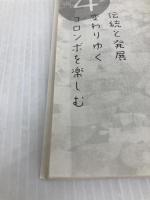 4
伝統と発展
変わりゆく
コロンボを楽しむ